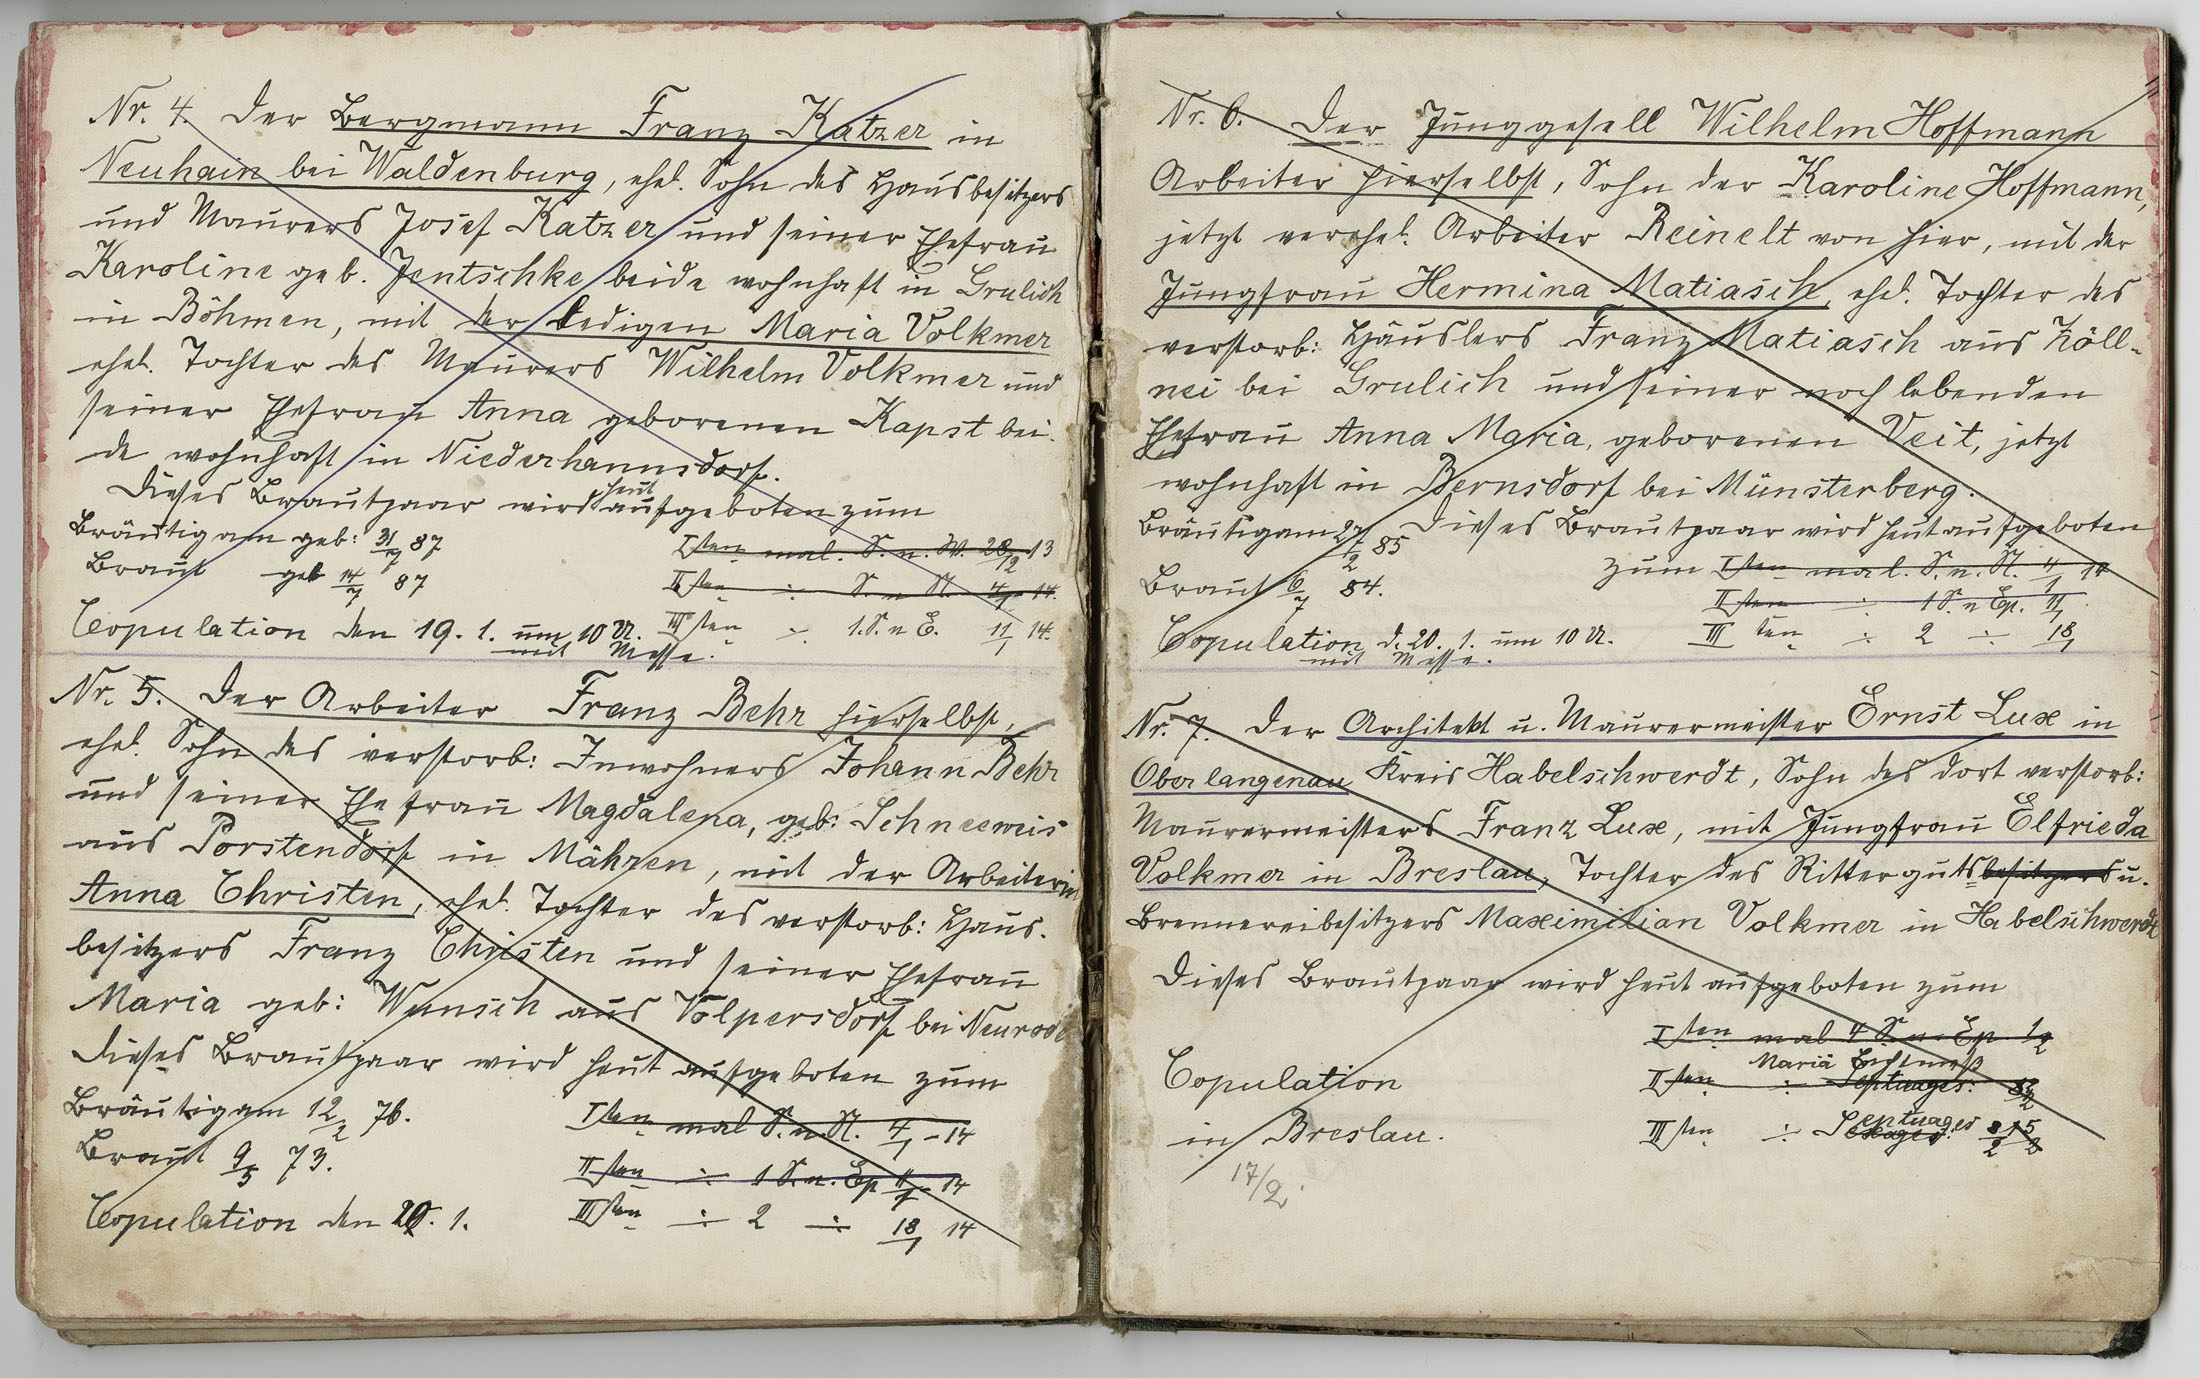 Nr. 4. Der Bergmann Franz Katzer in
Neuhain bei Waldenburg, ehel. Sohn des Hausbesitzers
und Maurers Josef Katzer und seiner Ehefrau
Karoline geb. Jentschke beide wohnhaft in Grulich
in Böhmen, mit der Ledigen Maria Volkmer
ehel. Tochter des Maurers Wilhelm Volkmer und
seiner Ehefrau Anna geborenen Kapst bei-
de wohnhaft in Niederhannsdorf.
Dieses Brautpaar wird heut aufgeboten zum
Bräutigam geb: 31/7 87
Isten mal. S. n. W. 28/12 13
Braut geb 14/7 87
IIsten ÷ S. n N. 4/1 14.
Copulation den 19. 1. um 10 U. IIIsten ÷ 1. S. n E. 11/1 14.
mit Messe.
Nr. 5. Der Arbeiter Franz Behr hierselbst,
ehel. Sohn des verstorb: Inwohners Johann Behr
und seiner Ehefrau Magdalena, geb: Schneeweis
aus Porstendorf in Mähren, mit der Arbeiterin
Anna Christen, ehel. Tochter des verstorb: Haus-
besitzers Franz Christen und seiner Ehefrau
Maria geb: Wunsch aus Volpersdorf bei Neurode
Dieses Brautpaar wird heut aufgeboten zum
Bräutigam 12/2 76.
Isten mal S. n. N. 4/1 - 14
Braut 9/5 73.
IIsten ÷ 1 S. n. Ep 11/1 - 14
Copulation den 20. 1.
IIIsten ÷ 2 ÷ 18/1 14
Nr. 6. Der Junggesell Wilhelm Hoffmann
Arbeiter hierselbst, Sohn der Karoline Hoffmann,
jetzt verehel. Arbeiter Reinelt von hier, mit der
Jungfrau Hermina Matiasch, ehel. Tochter des
verstorb: Häuslers Franz Matiasch aus Zöll-
nei bei Grulich und seiner noch lebenden
Ehefrau Anna Maria, geborenen Veit, jetzt
wohnhaft in Bernsdorf bei Münsterberg.
Bräutigam 27/2 85 Dieses Brautpaar wird heut aufgeboten
zum Isten mal. S. n. N. 4/1 14
Braut 6/7 84.
IIsten ÷ 1 S. n Ep. 11/1
Copulation d. 20. 1. um 10 U. IIIten ÷ 2 ÷ 18/1
mit Messe.
Nr. 7. Der Architekt u. Maurermeister Ernst Luxe in
Oberlangenau Kreis Habelschwerdt, Sohn des dort verstorb:
Maurermeisters Franz Luxe, mit Jungfrau Elfrieda
Volkmer in Breslau, Tochter des Ritterguts besitzers u.
Brennereibesitzers Maximilian Volkmer in Habelschwerdt
Dieses Brautpaar wird heut aufgeboten zum
Isten mal 4 S. n. Ep 1/2
Mariä Lichtmeß
Copulation
IIten ÷ Septuages:
Septuages
in Breslau.
IIIten ÷ Sexages:
17/2.